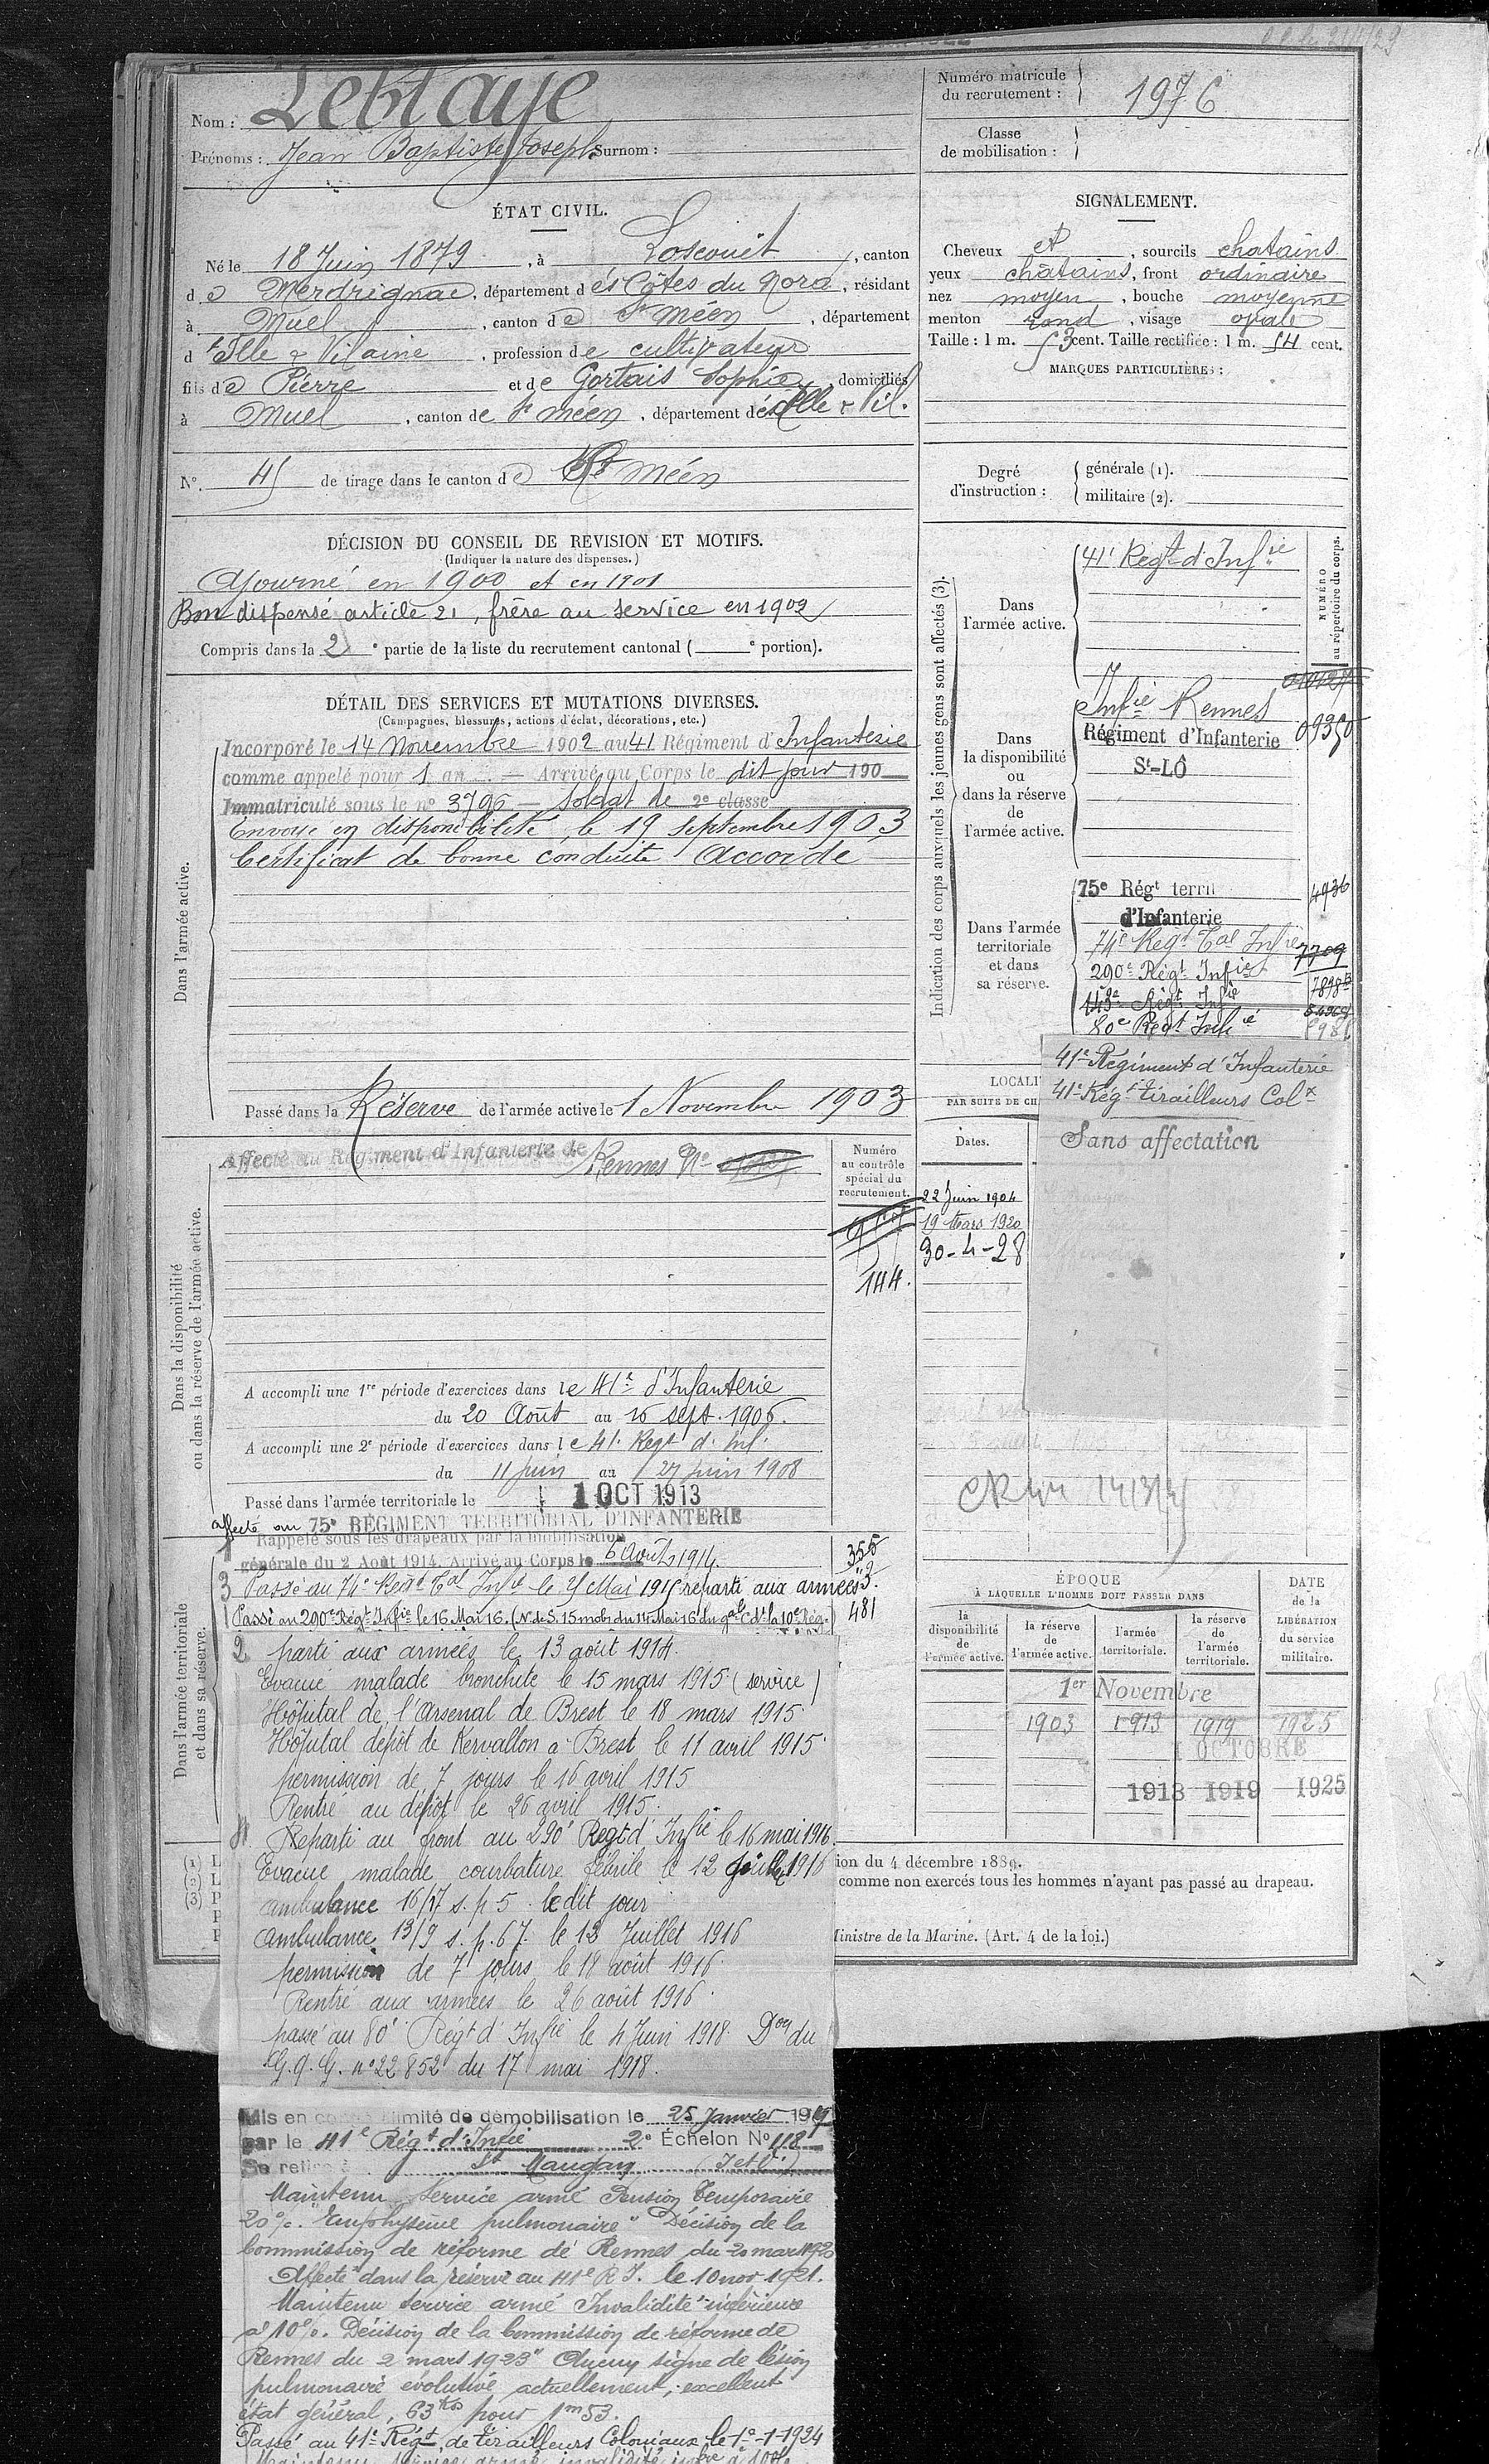 Nom : Leblaye
Prénoms : Jean Baptiste Joseph Surnom :
Numéro matricule du recrutement : 1976
Classe de mobilisation :
ÉTAT CIVIL.
Né le 18 Juin 1879, à Loscouët, canton
de Merdrignac, département des Côtes du Nord, résidant
à Muel, canton de St Méen, département
d'Ille & Vilaine, profession de cultivateur
fils de Pierre et de Gortais Sophie, domiciliés
à Muel, canton de St Méen, département d'Ille & Vil.
N° 45 de tirage dans le canton de St Méen
SIGNALEMENT.
Cheveux et, sourcils chatains
yeux châtains, front ordinaire
nez moyen, bouche moyenne
menton rond, visage ovale
Taille : 1 m. 53 cent. Taille rectifiée : 1 m. 54 cent.
MARQUES PARTICULIÈRES :
Degré d'instruction : générale (1).
militaire (2).
DÉCISION DU CONSEIL DE REVISION ET MOTIFS.
(Indiquer la nature des dispenses.)
Ajourné en 1900 et en 1901
Bon dispensé article 21, frère au service en 1902
Compris dans la 2e partie de la liste du recrutement cantonal ( e portion).
DÉTAIL DES SERVICES ET MUTATIONS DIVERSES.
(Campagnes, blessures, actions d'éclat, décorations, etc.)
Dans l'armée active.
Incorporé le 14 Novembre 1902 au 41 Régiment d'Infanterie
comme appelé pour 1 an — Arrivé au Corps le dit jour 190
Immatriculé sous le n° 3796 — Soldat de 2e classe
Envoyé en disponibilité, le 19 septembre 1903
Certificat de bonne conduite Accordé
Passé dans la Réserve de l'armée active le 1 Novembre 1903
Indication des corps auxquels les jeunes gens sont affectés (3).
NUMÉRO au répertoire du corps.
Dans l'armée active.
41e Regt d'Infie
Dans la disponibilité ou dans la réserve de l'armée active.
Infie Rennes
Régiment d'Infanterie 09350
St-LÔ
Dans l'armée territoriale et dans sa réserve.
75e Régt territ 4936
d'Infanterie
74e Regt Tal Infie 7709
290e Régt Infie 7898
143e Régt Infie
80e Régt Infie
41e Régiment d'Infanterie
41e Régt tirailleurs Colx
Sans affectation
LOCALI
PAR SUITE DE CH
Dates.
22 Juin 1904
19 Mars 1920
30-4-28
Dans la disponibilité ou dans la réserve de l'armée active.
Affecté au Régiment d'Infanterie de Rennes No
Numéro au contrôle spécial du recrutement.
144.
A accompli une 1re période d'exercices dans le 41e d'Infanterie
du 20 Août au 16 sept. 1906.
A accompli une 2e période d'exercices dans le 41. Regt d. Inf.
du 11 juin au 27 juin 1908
Passé dans l'armée territoriale le 1 OCT 1913
affecté au 75e RÉGIMENT TERRITORIAL D'INFANTERIE
Dans l'armée territoriale et dans sa réserve.
1 Rappelé sous les drapeaux par la mobilisation
générale du 2 Août 1914. Arrivé au Corps le 6 Août 1914. 355
3 Passé au 74e Regt Tal Infie le 25 Mai 1915 reparti aux armées "3".
Passé au 290e Régt Infie le 16 Mai 16. (N. de S. 15 mobn du 14 Mai 16 du gal Cdt la 10e Rég. 481
2 parti aux armées le 13 août 1914.
Evacué malade bronchite le 15 mars 1915 (service)
Hôpital de l'Arsenal de Brest le 18 mars 1915.
Hôpital dépôt de Kervallon à Brest le 11 avril 1915.
permission de 7 jours le 16 avril 1915
Rentré au dépôt le 26 avril 1915.
4. Reparti au front au 290e Regt d'Infie le 16 mai 1916.
Evacué malade courbature fébrile le 12 Juillet 1916
ambulance 16/17 s.p. 5. le dit jour
ambulance 13/9 s.p. 67. le 13 Juillet 1916
permission de 7 jours le 18 août 1916.
Rentré aux armées le 26 août 1916.
passé au 80e Régt d'Infie le 4 Juin 1918. Don du
G.Q.G. n° 22852 du 17 mai 1918.
Mis en congé illimité de démobilisation le 25 Janvier 1919
par le 41e Régt d'Infie 2e Échelon N° 118
Se retire à St Maugan (I et V)
Maintenu Service armé Pension Temporaire
20%. "Emphysème pulmonaire" Décision de la
Commission de réforme de Rennes du 20 mars 1920
Affecté dans la réserve au 41e R I. le 10 nov 1921.
Maintenu service armé Invalidité inférieure
à 10%. Décision de la Commission de réforme de
Rennes du 2 mars 1923 "Aucun signe de lésion
pulmonaire évolutive actuellement, excellent
état général, 63 kos pour 1m53.
Passé au 41e Régt de tirailleurs Coloniaux le 1e-1-1924
ÉPOQUE
À LAQUELLE L'HOMME DOIT PASSER DANS
la disponibilité de l'armée active.
la réserve de l'armée active.
l'armée territoriale.
la réserve de l'armée territoriale.
DATE de la LIBÉRATION du service militaire.
1er Novembre
1903 1913 1919 1925
1 OCTOBRE
1913 1919 1925
(1) L
(2) L
(3) P
ion du 4 décembre 1889.
comme non exercés tous les hommes n'ayant pas passé au drapeau.
Ministre de la Marine. (Art. 4 de la loi.)